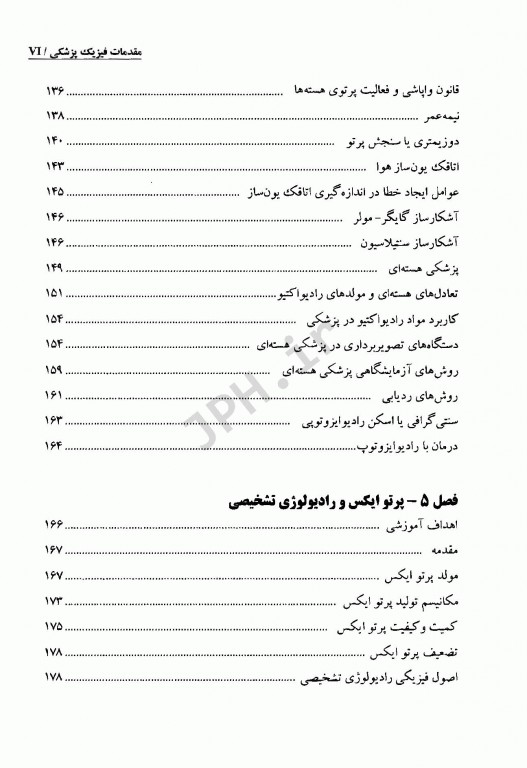 مقدمات فیزیک پزشکی / VI
قانون واپاشی و فعالیت پرتوی هسته‌ها ........ ۱۳۶
نیمه‌عمر ........ ۱۳۸
دوزیمتری یا سنجش پرتو ........ ۱۴۰
اتاقک یون‌ساز هوا ........ ۱۴۳
عوامل ایجاد خطا در اندازه‌گیری اتاقک یون‌ساز ........ ۱۴۵
آشکارساز گایگر - مولر ........ ۱۴۶
آشکارساز سنتیلاسیون ........ ۱۴۶
پزشکی هسته‌ای ........ ۱۴۹
تعادل‌های هسته‌ای و مولدهای رادیواکتیو ........ ۱۵۱
کاربرد مواد رادیواکتیو در پزشکی ........ ۱۵۴
دستگاه‌های تصویربرداری در پزشکی هسته‌ای ........ ۱۵۴
روش‌های آزمایشگاهی پزشکی هسته‌ای ........ ۱۵۹
روش‌های ردیابی ........ ۱۶۱
سنتی‌گرافی یا اسکن رادیوایزوتوپی ........ ۱۶۳
درمان با رادیوایزوتوپ ........ ۱۶۴
فصل ۵ - پرتو ایکس و رادیولوژی تشخیصی
اهداف آموزشی ........ ۱۶۶
مقدمه ........ ۱۶۷
مولد پرتو ایکس ........ ۱۶۷
مکانیسم تولید پرتو ایکس ........ ۱۷۳
کمیت و کیفیت پرتو ایکس ........ ۱۷۵
تضعیف پرتو ایکس ........ ۱۷۸
اصول فیزیکی رادیولوژی تشخیصی ........ ۱۷۸
JPH.ir